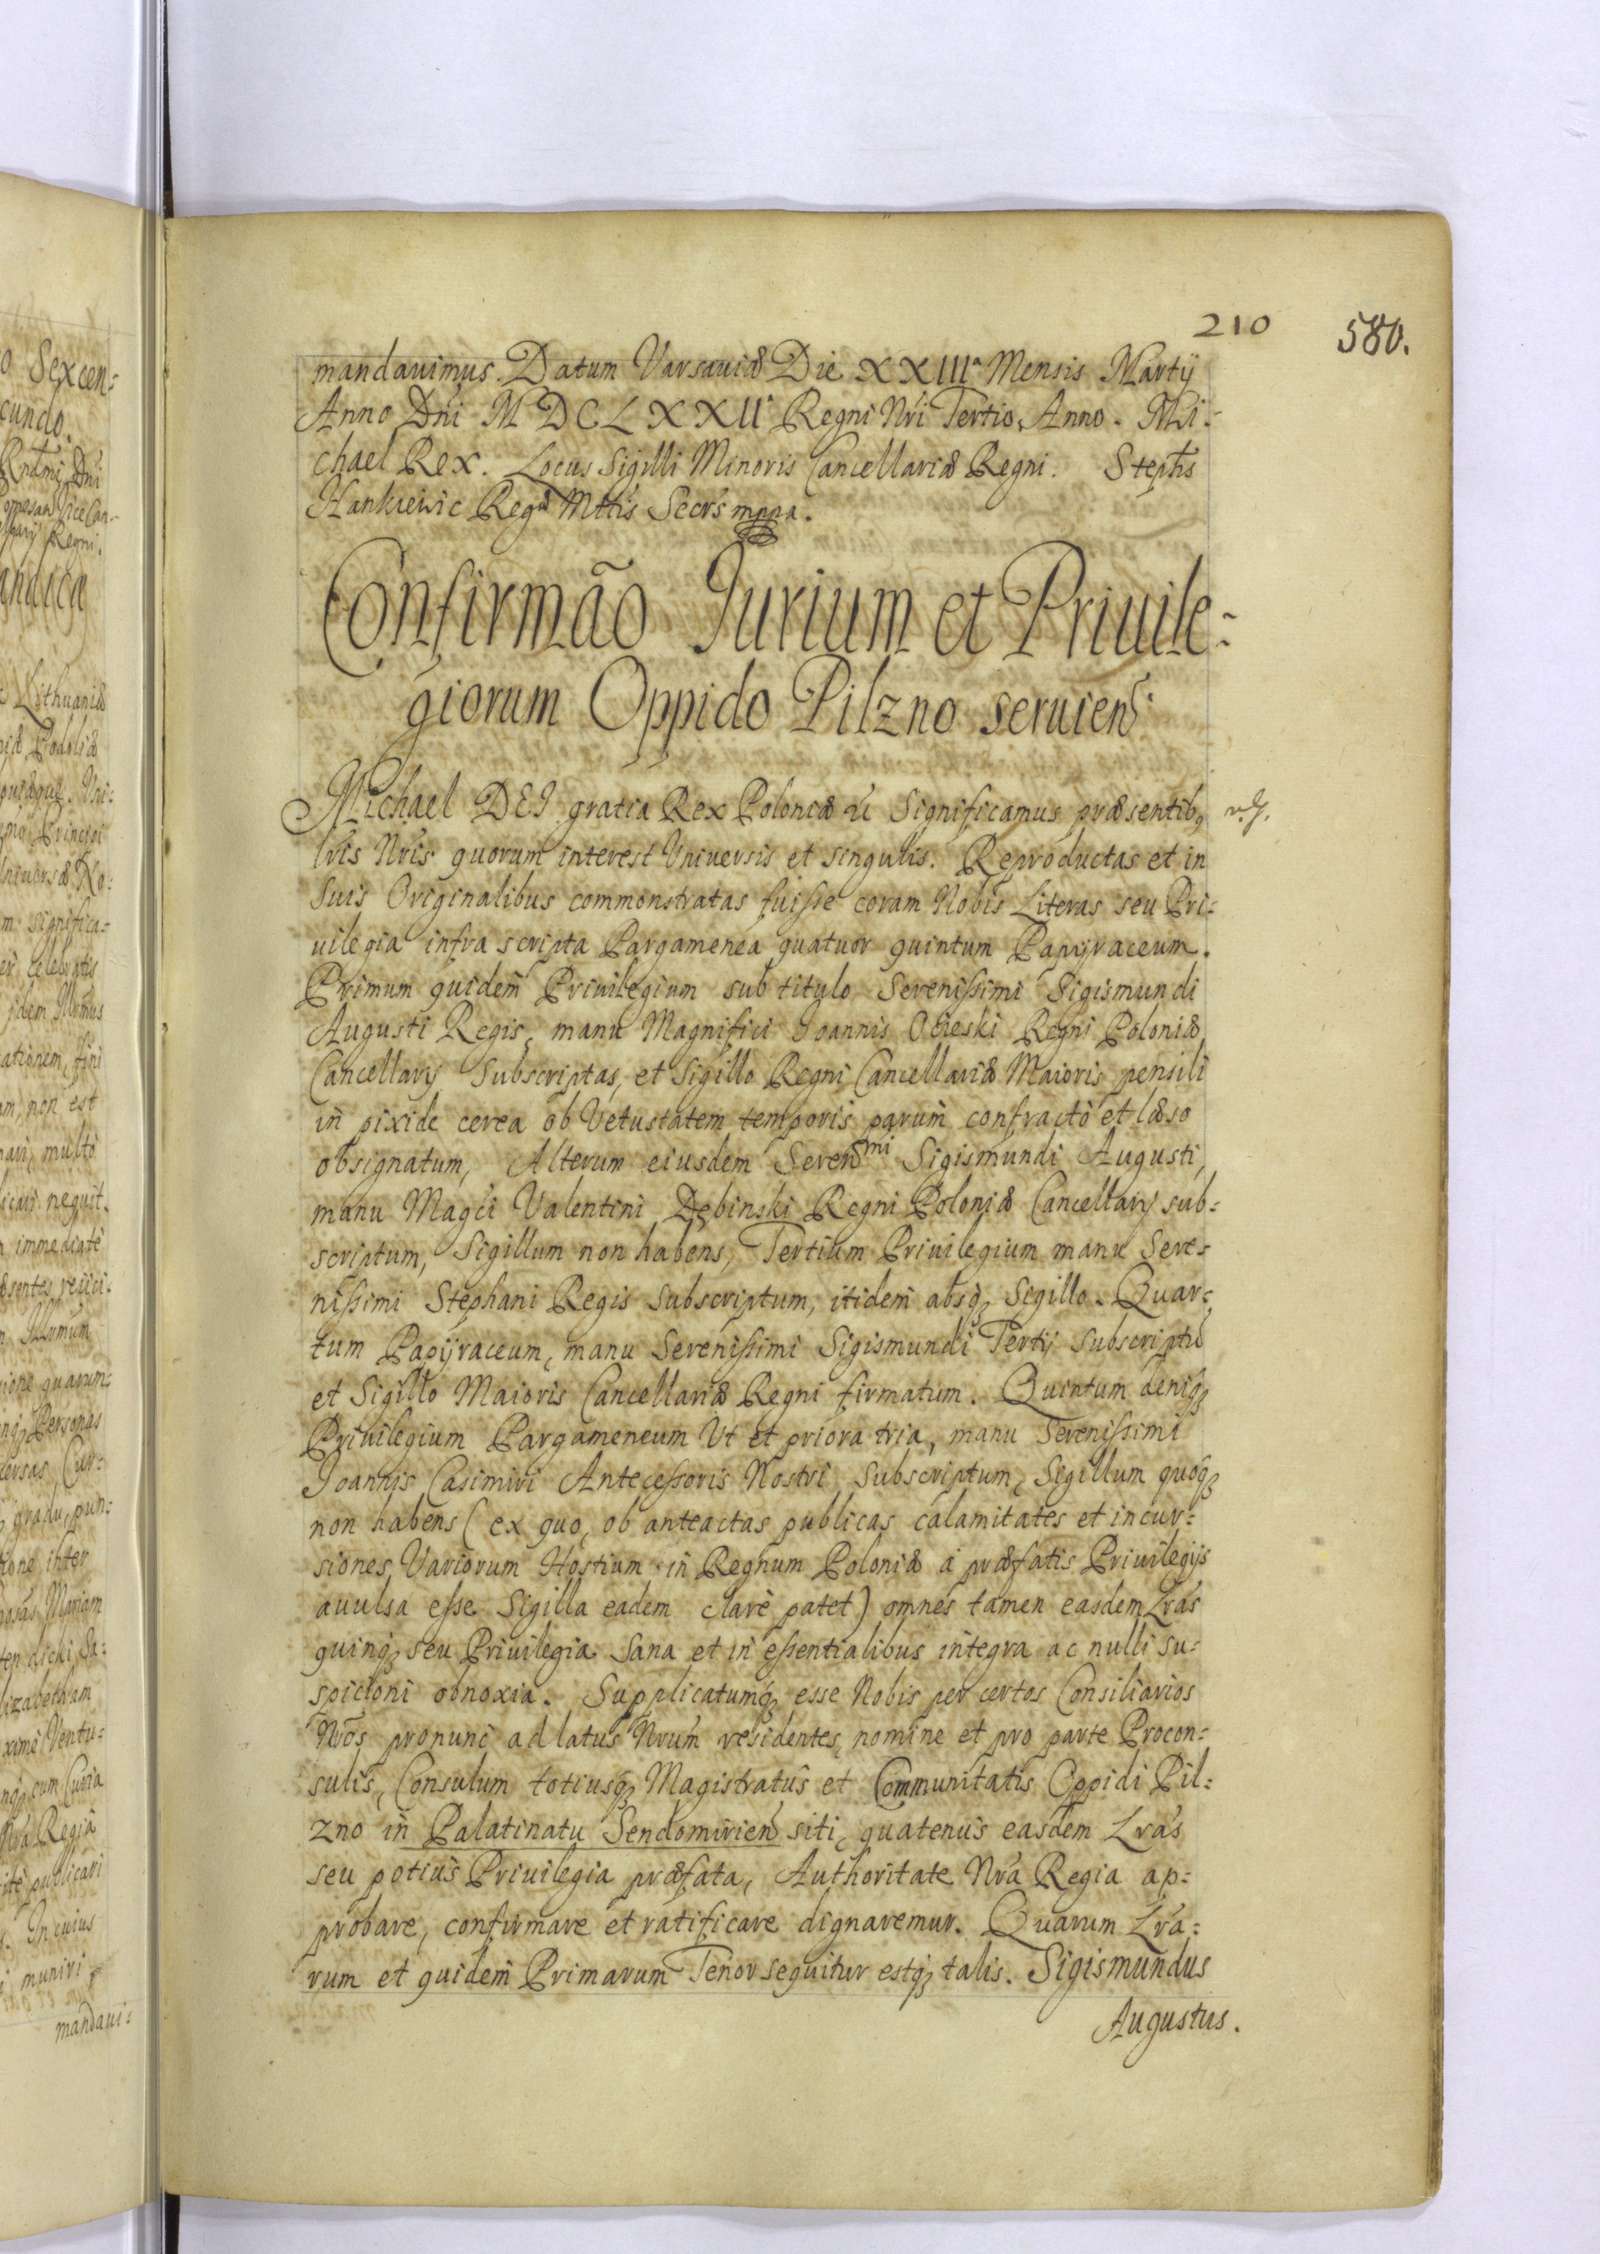 o Sexcen-
cundo.
Dni
Vice Can-
Regni.
Lithuaniæ
Podoliæ
significa-
celebratis
idem
non est
multo
nequit.
immediate
quarum-
Personas
gradu, pun-
inter
Mariam
cum Curia
Nra Regia
publicari
In cuius
muniri
mandaui-
210
580.
mandauimus. Datum Varsauiæ Die XXIIIa Mensis Martij
Anno Dni MDCLXXII Regni Nri Tertio Anno. Mi-
chael Rex. Locus Sigilli Minoris Cancellariæ Regni. Stephs
Hankiewic Regæ Mttis Secrs mppa.
Confirmão Iurium et Priuile-
giorum Oppido Pilzno seruien
Michael DEI gratia Rex Poloniæ &c Significamus præsentibq
lris Nris quorum interest Vniuersis et singulis. Reproductas et in
Suis Originalibus commonstratas fuisse coram Nobis Literas seu Pri-
uilegia infra scripta Pargamenea quatuor quintum Papyraceum.
Primum quidem Priuilegium sub titulo Serenissimi Sigismundi
Augusti Regis, manu Magnifici Joannis Ocieski Regni Poloniæ
Cancellarij Subscriptas, et Sigillo Regni Cancellariæ Maioris pensili
in pixide cerea ob Vetustatem temporis parum confracto et læso
obsignatum, Alterum eiusdem Serenmi Sigismundi Augusti,
manu Magci Valentini Dębinski Regni Poloniæ Cancellarij sub-
scriptum, Sigillum non habens, Tertium Priuilegium manu Sere-
nissimi Stephani Regis Subscriptum, itidem absq Sigillo. Quar-
tum Papyraceum, manu Serenissimi Sigismundi Tertij Subscriptu
et Sigillo Maioris Cancellariæ Regni firmatum. Quintum deniq
Priuilegium Pargameneum Vt et priora tria, manu Serenissimi
Joannis Casimiri Antecessoris Nostri Subscriptum, Sigillum quoq
non habens (ex quo, ob anteactas publicas calamitates et incur-
siones Variorum Hostium in Regnum Poloniæ à præfatis Priuilegijs
auulsa esse Sigilla eadem clarè patet) omnes tamen easdem Lras
quinq seu Priuilegia Sana et in essentialibus integra ac nulli su-
spicioni obnoxia. Supplicatumq esse Nobis per certos Consiliarios
Nros pronunc ad latus Nrum residentes, nomine et pro parte Procon-
sulis, Consulum totiusq Magistratus et Communitatis Oppidi Pil-
zno in Palatinatu Sendomirien siti, quatenus easdem Lras
seu potius Priuilegia præfata, Authoritate Nra Regia ap-
probare, confirmare et ratificare dignaremur. Quarum Lra-
rum et quidem Primarum Tenor sequitur estq talis. Sigismundus
Augustus.